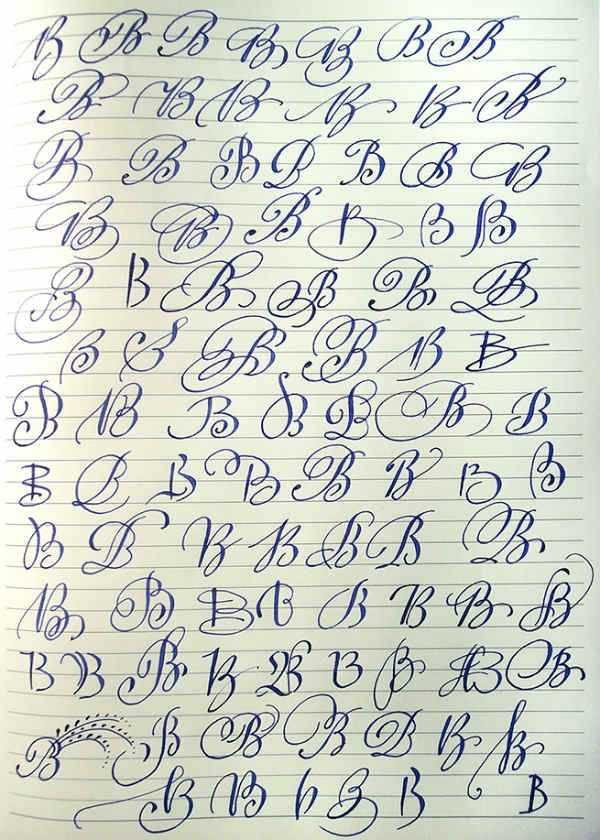 B B B B B B B
B B B B B B
B B B B B B B
B B B B B B
B B B B B B
B B B B B B
B B B B B B B
B B B B B B B B
B B B B B B B
B B B B B B B B
B B B B B B B B B
B B B B B B B
B B b B B B